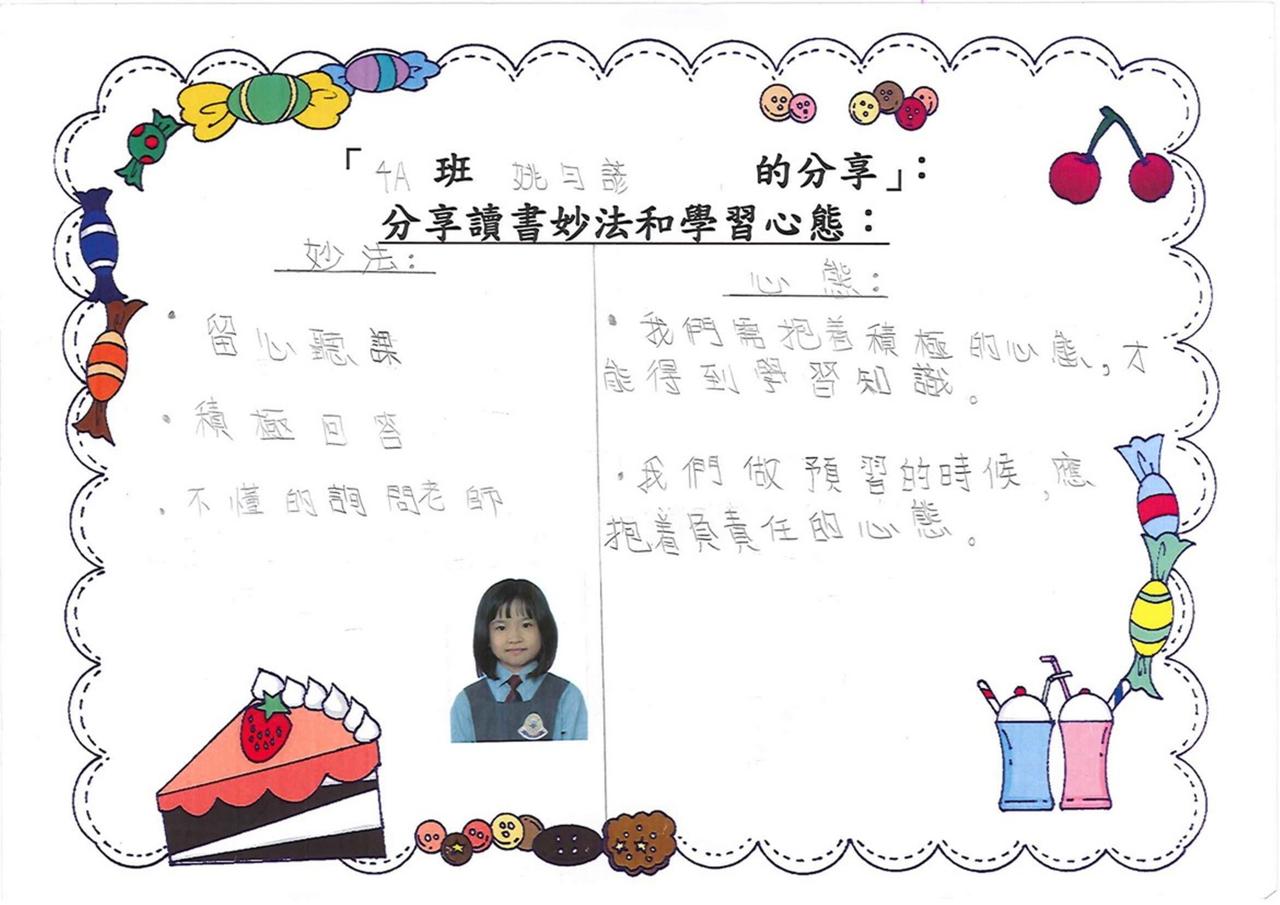 「4A 班 姚曰諺 的分享」：
分享讀書妙法和學習心態：
妙法：
• 留心聽課
• 積極回答
• 不懂的詢問老師
心態：
• 我們需抱着積極的心態，才
能得到學習知識。
• 我們做預習的時候，應
抱着負責任的心態。